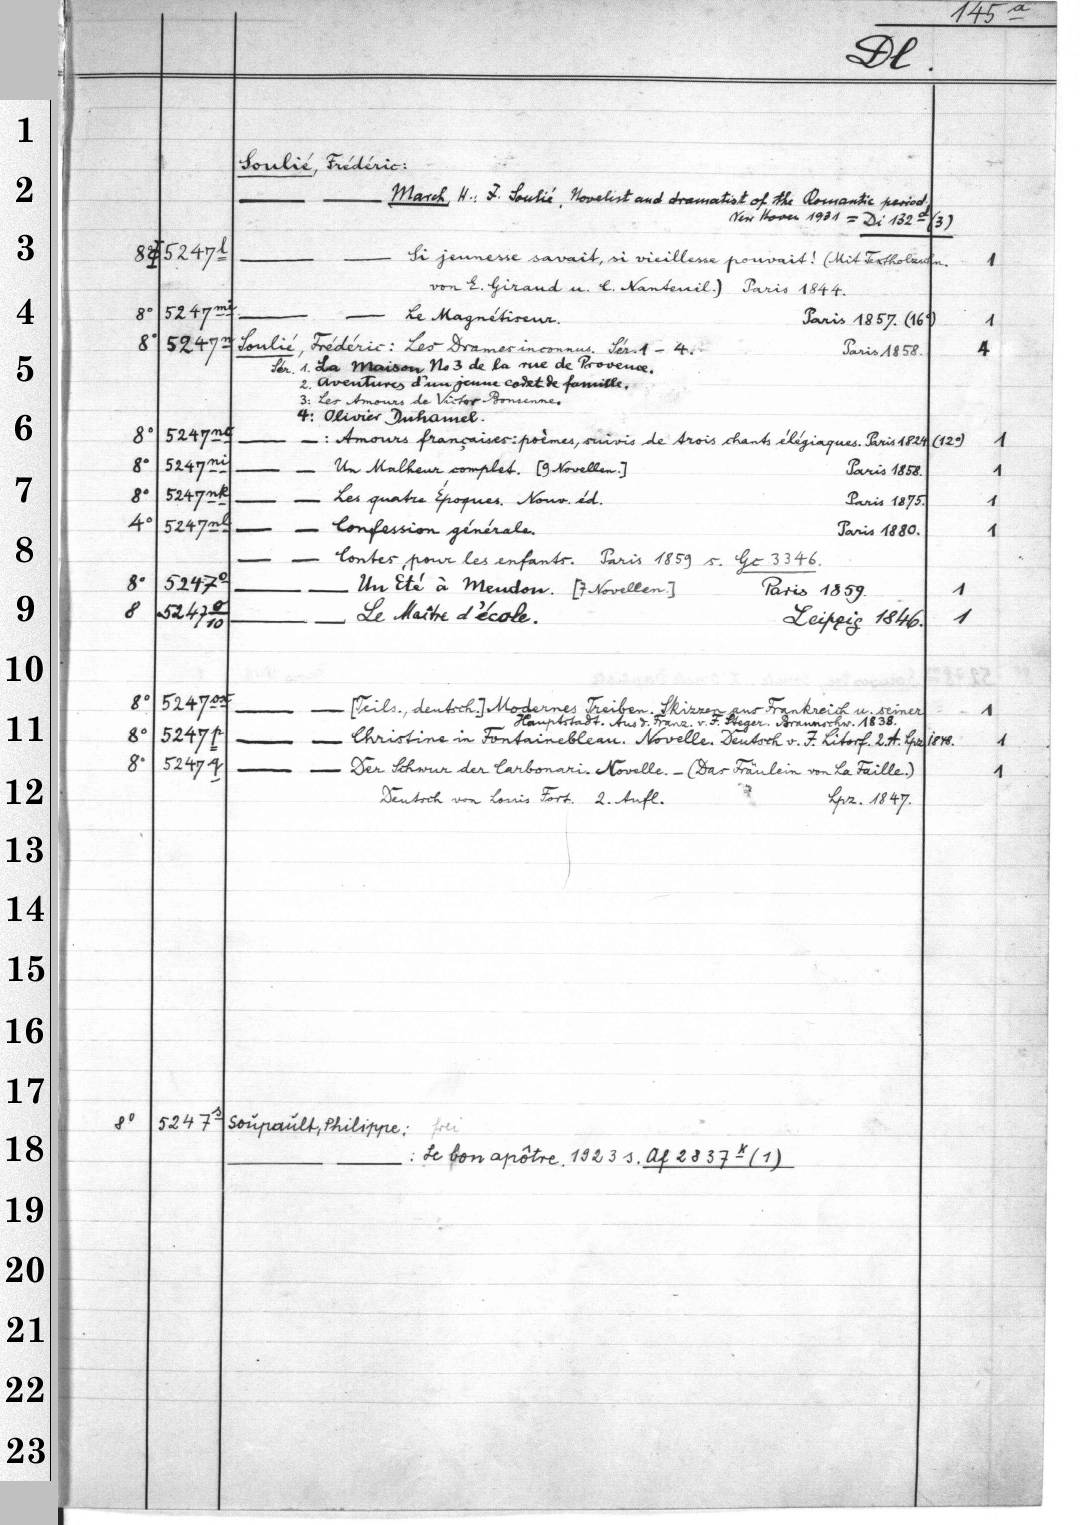 145 a
Dl.
Soulié, Frédéric:
March, H.: F. Soulié, Novelist and dramatist of the Romantic period,
New Haven 1931 = Di 132 d (3)
8° 5247 l Si jeunesse savait, si vieillesse pouvait! (Mit Textholzschn. 1
von E. Giraud u. C. Nanteuil.) Paris 1844.
8° 5247 mi Le Magnétiseur. Paris 1857. (16°) 1
8° 5247 n Soulié, Frédéric: Les Drames inconnus. Sér. 1-4. Paris 1858. 4
Sér. 1. La Maison No 3 de la rue de Provence.
2. Aventures d'un jeune cadet de famille.
3: Les Amours de Victor Bonsenne.
4: Olivier Duhamel.
8° 5247 : Amours françaises: poèmes, suivis de trois chants élégiaques. Paris 1824 (12°) 1
8° 5247 ni Un Malheur complet. [9 Novellen.] Paris 1858. 1
8° 5247 nk Les quatre Époques. Nouv. éd. Paris 1875. 1
4° 5247 nl Confession générale. Paris 1880. 1
Contes pour les enfants. Paris 1859 s. Gc 3346.
8° 5247 o Un Eté à Meudon. [7 Novellen.] Paris 1859. 1
8 5247 o/10 Le Maître d'école. Leipzig 1846. 1
8° 5247 [Teils., deutsch.] Modernes Treiben. Skizzen aus Frankreich u. seiner 1
Hauptstadt. Aus d. Franz. v. F. Steger. Braunschw. 1838.
8° 5247 p Christine in Fontainebleau. Novelle. Deutsch v. F. Litorf. 2. A. Lpz 1848. 1
8° 5247 q Der Schwur der Carbonari. Novelle. - (Das Fräulein von La Faille.) 1
Deutsch von Louis Fort. 2. Aufl. Lpz. 1847.
8° 5247 s Soupault, Philippe: frei
: Le bon apôtre. 1923 s. Af 2837 k (1)
1
2
3
4
5
6
7
8
9
10
11
12
13
14
15
16
17
18
19
20
21
22
23